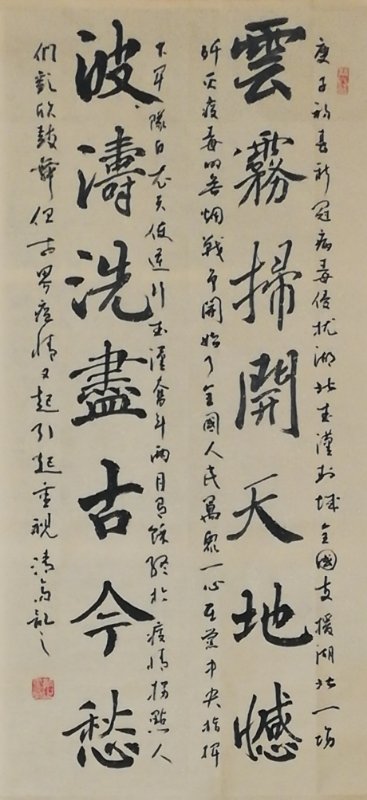 庚子初春新冠病毒侵扰湖北武漢封城全國支援湖北一场
雲霧掃開天地憾
歼灭疫毒的無烟戰争開始了全國人民萬眾一心在黨中央指揮
下軍隊白衣天使逆行武漢奮斗兩月有餘終於疫情拐點人
波濤洗盡古今愁
們歡欣鼓舞但世界疫情又起引起重視清亮記之